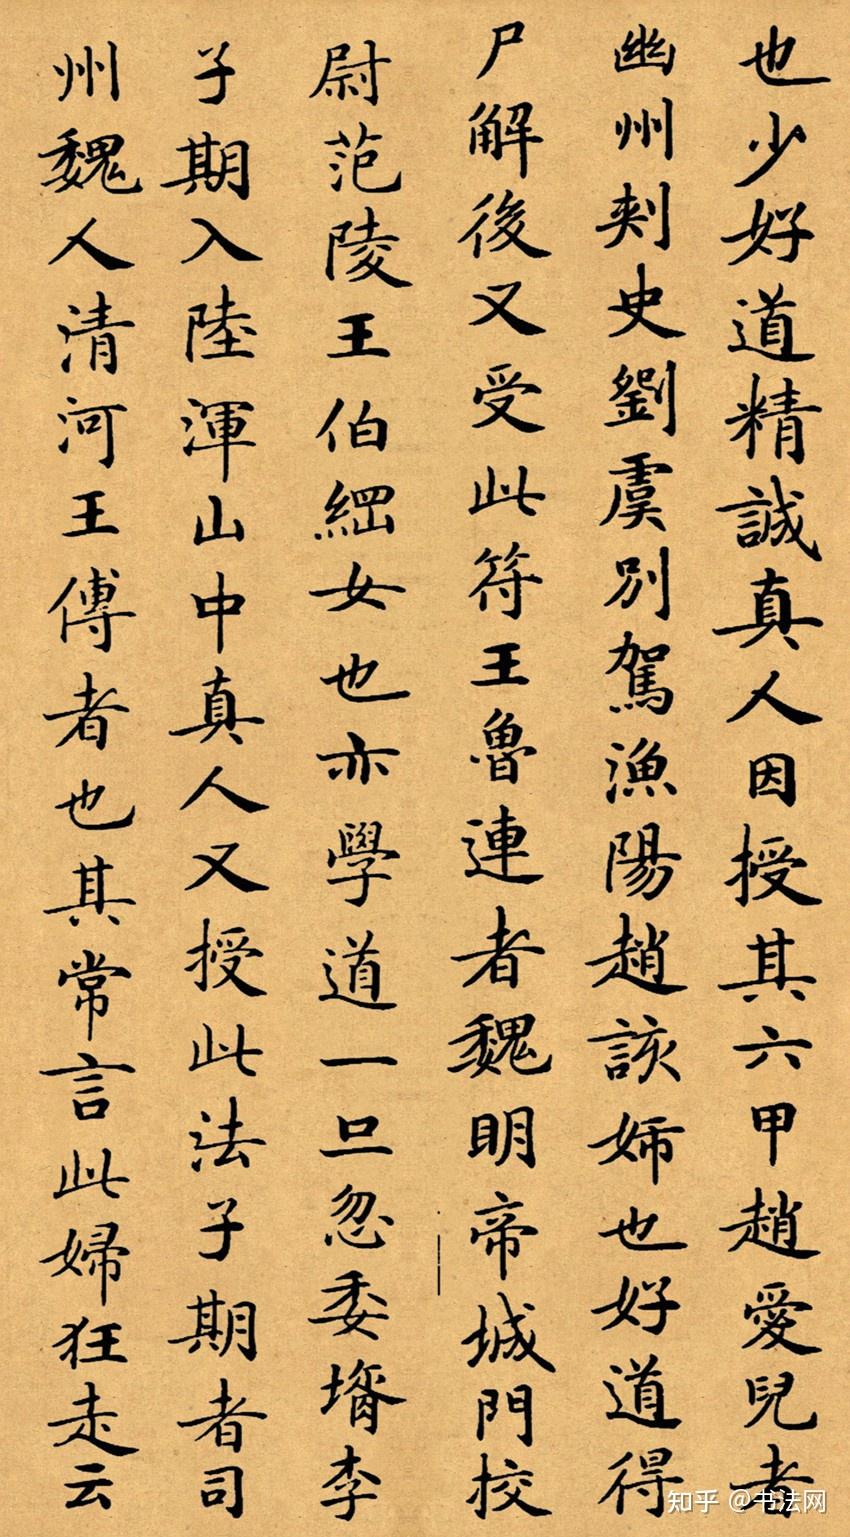 也少好道精誠真人因授其六甲趙愛兒者
幽州刾史劉虞別駕漁陽趙該姉也好道得
尸解後又受此符王魯連者魏明帝城門校
尉范陵王伯綑女也亦學道一旦忽委壻李
子期入陸渾山中真人又授此法子期者司
州魏人清河王傅者也其常言此婦狂走云
知乎 @书法网